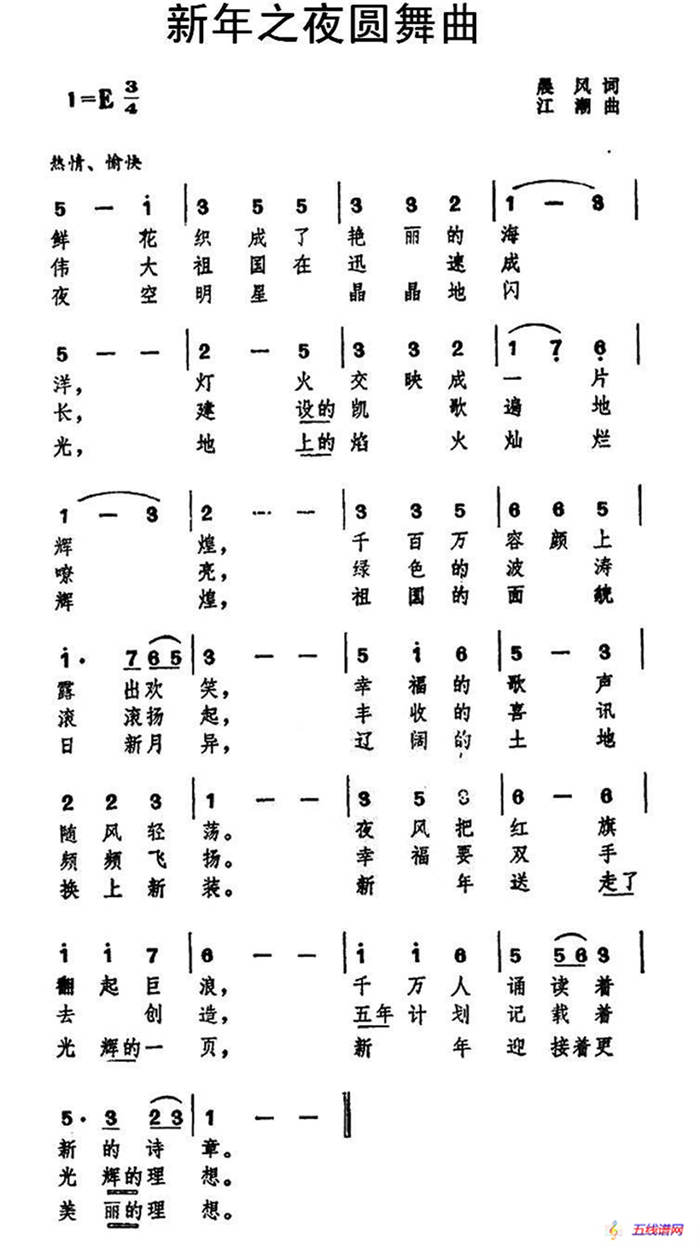 新年之夜圆舞曲
1=E 3/4
晨风词
江潮曲
热情、愉快
5 — i | 3 5 5 | 3 3 2 | 1 — 3 |
鲜花织成了艳丽的海
伟大祖国在迅速成
夜空明星晶晶地闪
5 — — | 2 — 5 | 3 3 2 | 1 7̣ 6̣ |
洋,灯火交映成一片
长,建设的凯歌遍地
光,地上的焰火灿烂
1 — 3 | 2 — — | 3 3 5 | 6 6 5 |
辉煌,千百万容颜上
嘹亮,绿色的波涛
辉煌,祖国的面貌
i· 7 6 5 | 3 — — | 5 i 6 | 5 — 3 |
露出欢笑,幸福的歌声
滚滚扬起,丰收的喜讯
日新月异,辽阔的土地
2 2 3 | 1 — — | 3 5 3 | 6 — 6 |
随风轻荡。夜风把红旗
频频飞扬。幸福要双手
换上新装。新年送走了
i i 7 | 6 — — | i i 6 | 5 5 6 3 |
翻起巨浪,千万人诵读着
去创造,五年计划记载着
光辉的一页,新年迎接着更
5· 3 2 3 | 1 — — ‖
新的诗章。
光辉的理想。
美丽的理想。
五线谱网